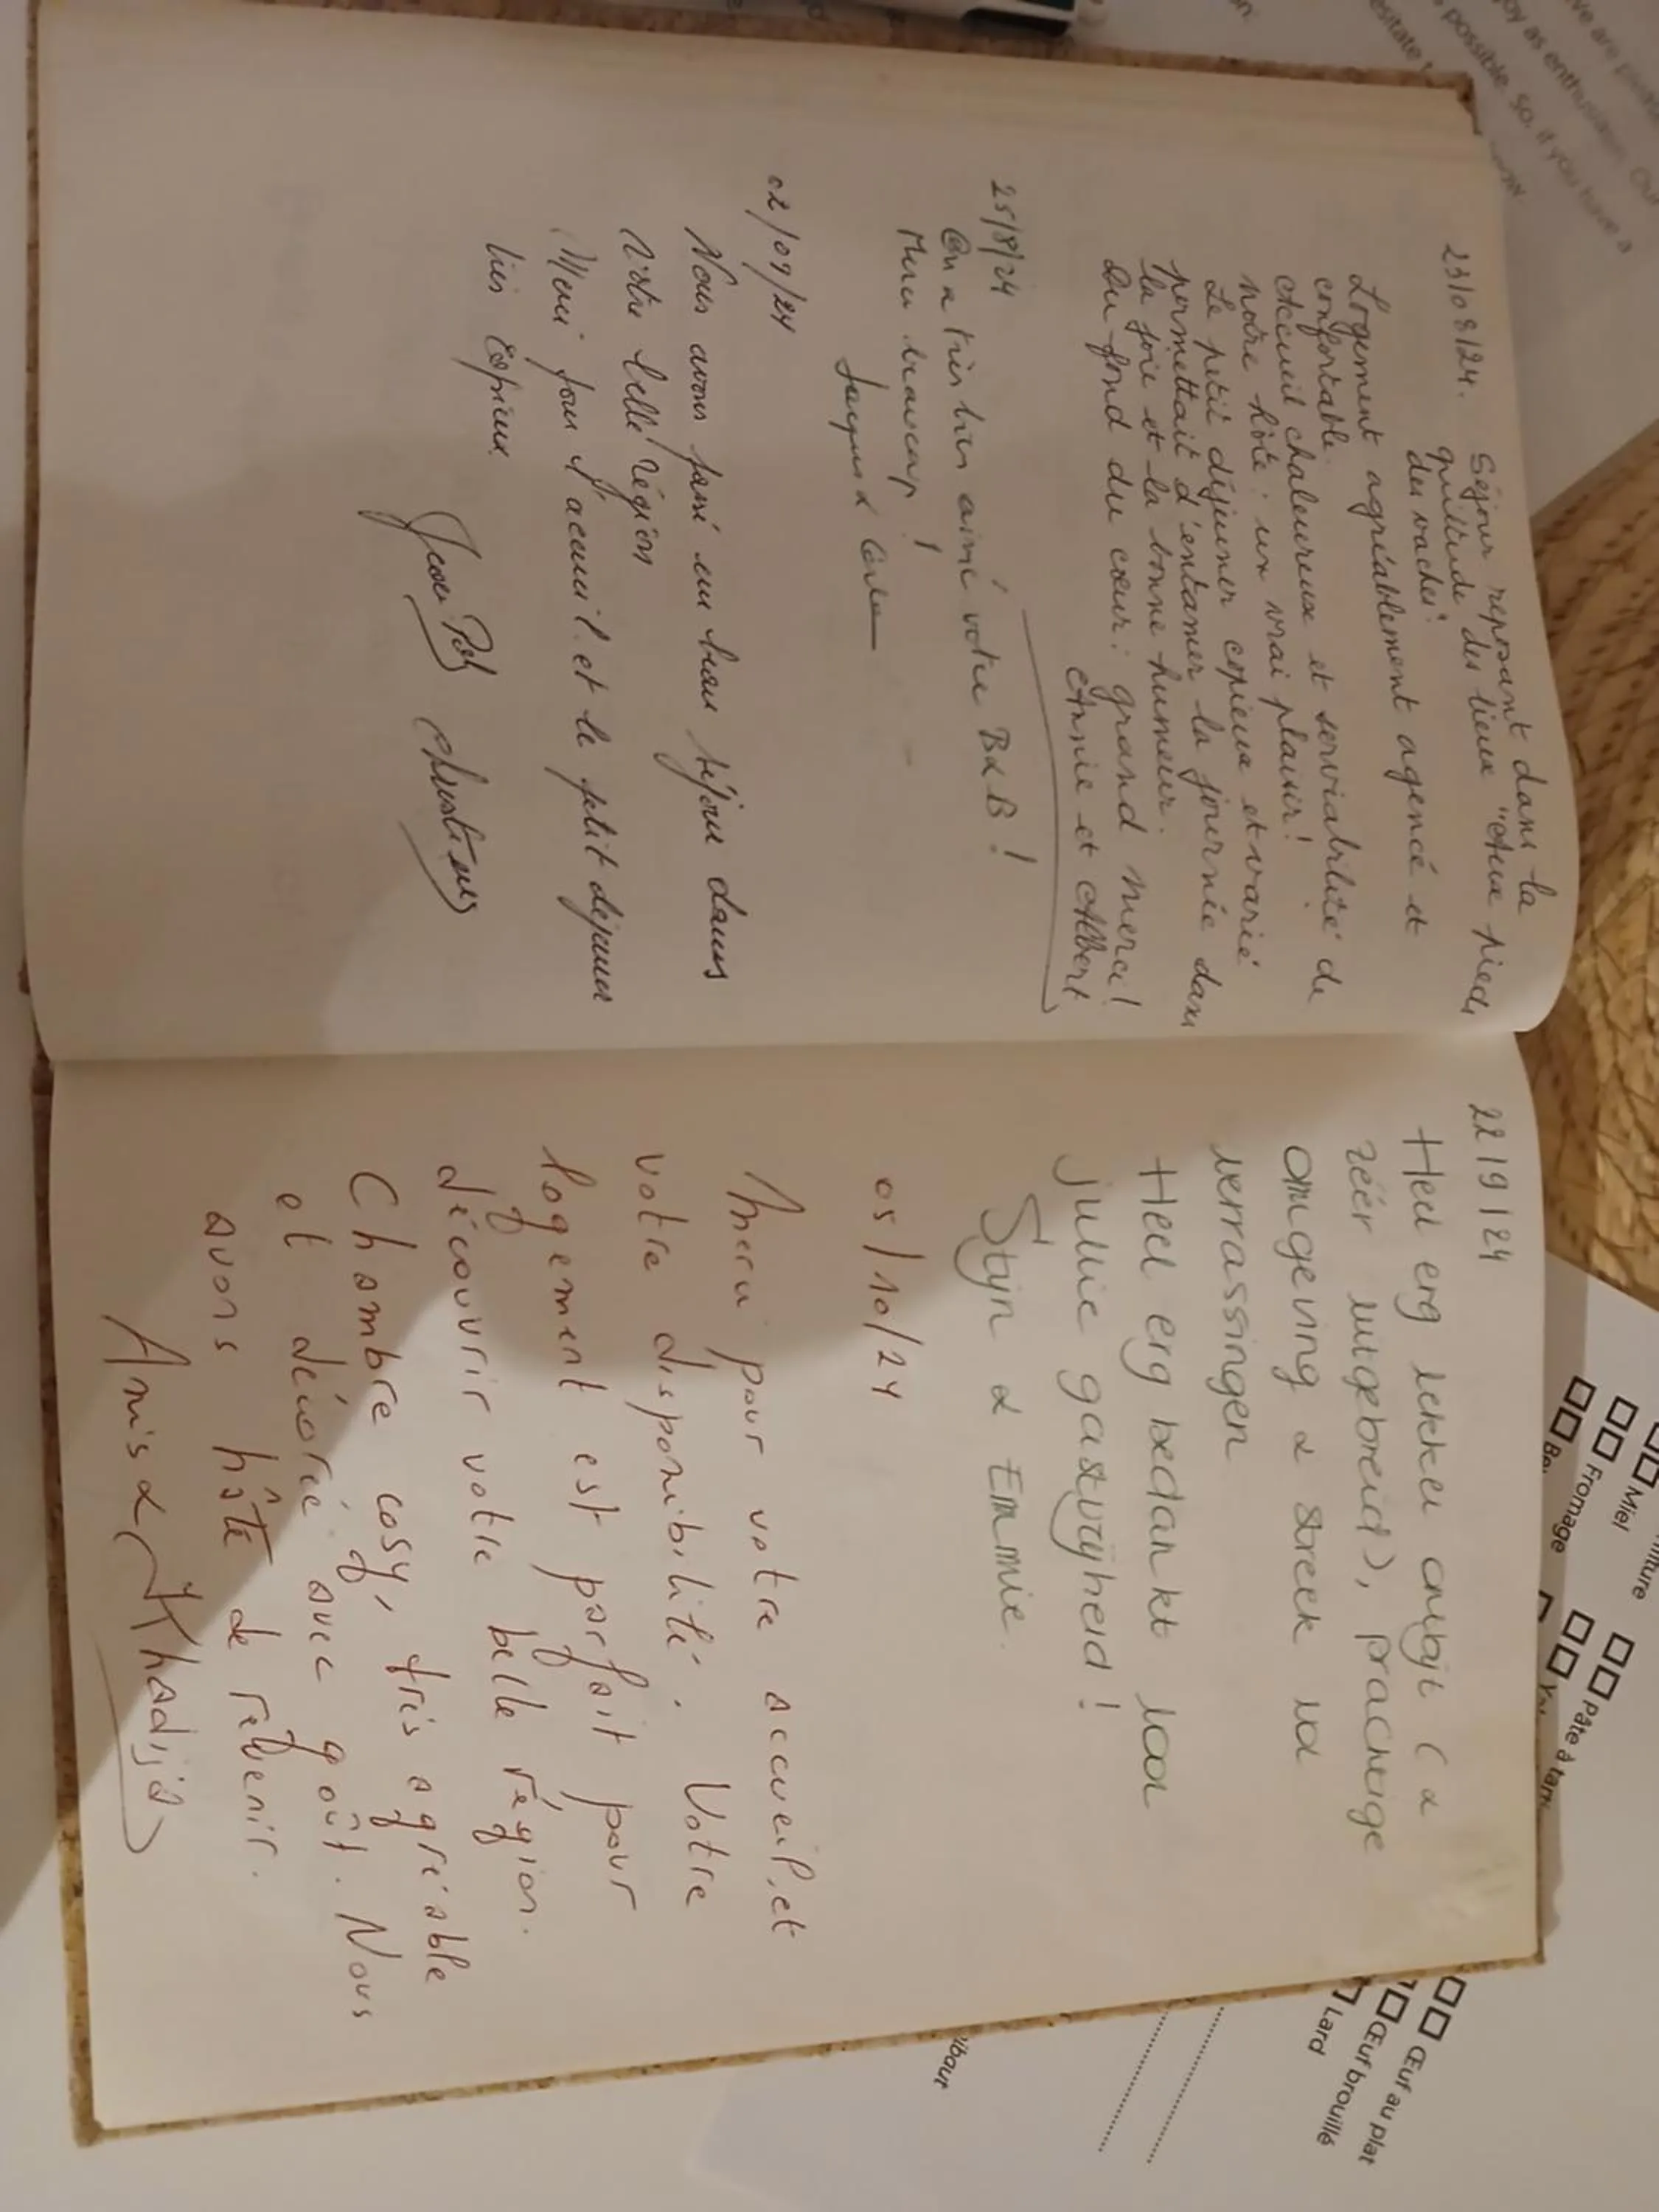 23/08/24. Séjour reposant dans la
quiétude des lieux "Aux pieds
des vaches"
Logement agréablement agencé et
confortable.
Accueil chaleureux et serviabilité de
notre hôte : un vrai plaisir!
Le petit déjeuner copieux et varié
permettait d'entamer la journée dans
la joie et la bonne humeur.
Du fond du cœur : grand merci!
Annie et Albert
25/8/24
On a très bien aimé votre B&B!
Merci beaucoup!
Jacques &
02/09/24
Nous avons passé un beau séjour dans
Votre belle région
Merci pour l'acceuil et le petit dejeuner
bien copieux
22/9/24
Heel erg lekker ontbijt (&
zéér uitgebreid), prachtige
omgeving & streek vol
verrassingen
Heel erg bedankt voor
jullie gastvrijheid!
Stijn & Emmie.
05/10/24
Merci pour votre accueil, et
votre disponibilité. Votre
logement est parfait pour
découvrir votre belle région.
Chambre cosy, très agréable
et décoré avec goût. Nous
avons hâte de revenir.
Anis & Khadija
possible. So, if you have a
Miel
Fromage
Pâte à tart
Œuf au plat
Œuf brouillé
Lard